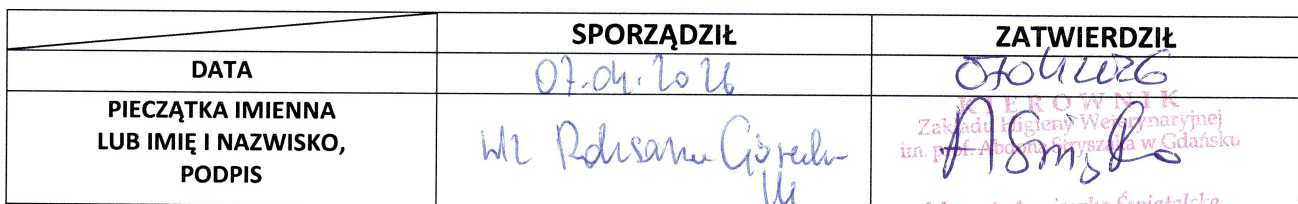 SPORZĄDZIŁ ZATWIERDZIŁ
DATA 07.04.2026 07042026
PIECZĄTKA IMIENNA
LUB IMIĘ I NAZWISKO,
PODPIS
wz Roksana Górecka
KIEROWNIK
Zakładu Higieny Weterynaryjnej
im. prof. Abdona Stryszaka w Gdańsku